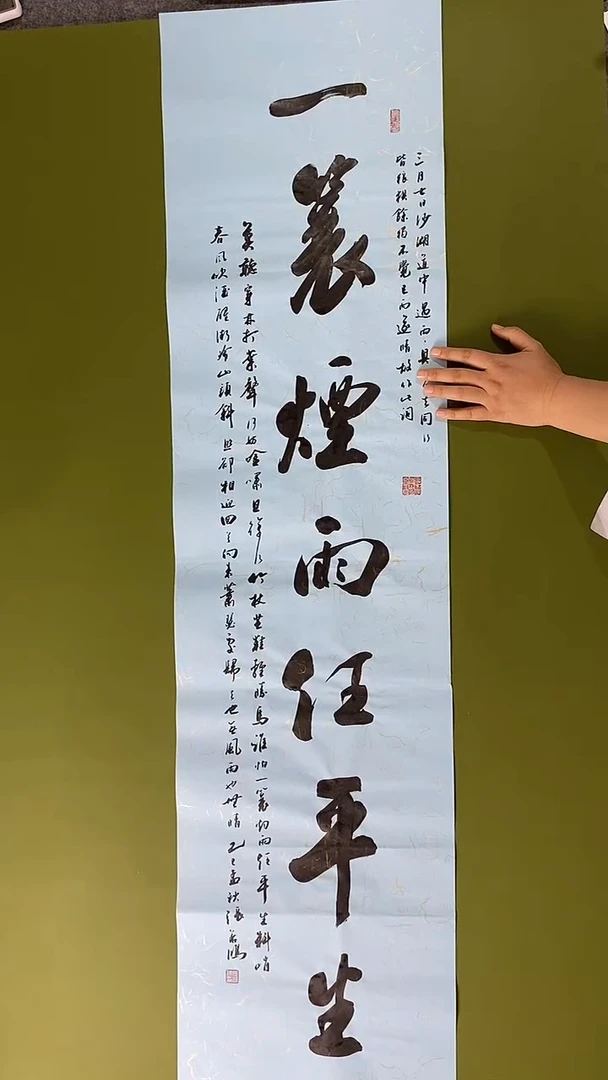 三月七日沙湖道中遇雨具去同行
皆狼狽餘獨不覺已而遂晴故作此詞
一蓑煙雨任平生
莫聽穿林打葉聲何妨吟嘯且徐行竹杖芒鞋輕勝馬誰怕一蓑烟雨任平生料峭
春風吹酒醒微冷山頭斜照卻相迎回首向來蕭瑟處歸去也無風雨也無晴 乙巳孟秋張鴻